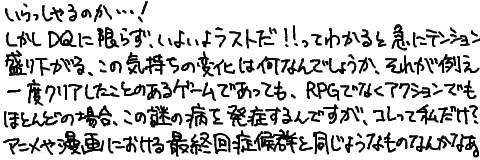 いらっしゃるのか…！
しかしDQに限らず、いよいよラストだ！！ってわかると急にテンション
盛り下がる、この気持ちの変化は何なんでしょうか、それが例え
一度クリアしたことのあるゲームであっても、RPGでなくアクションでも
ほとんどの場合、この謎の病を発症するんですが、コレって私だけ？
アニメや漫画における最終回症候群と同じようなものなんかなあ。